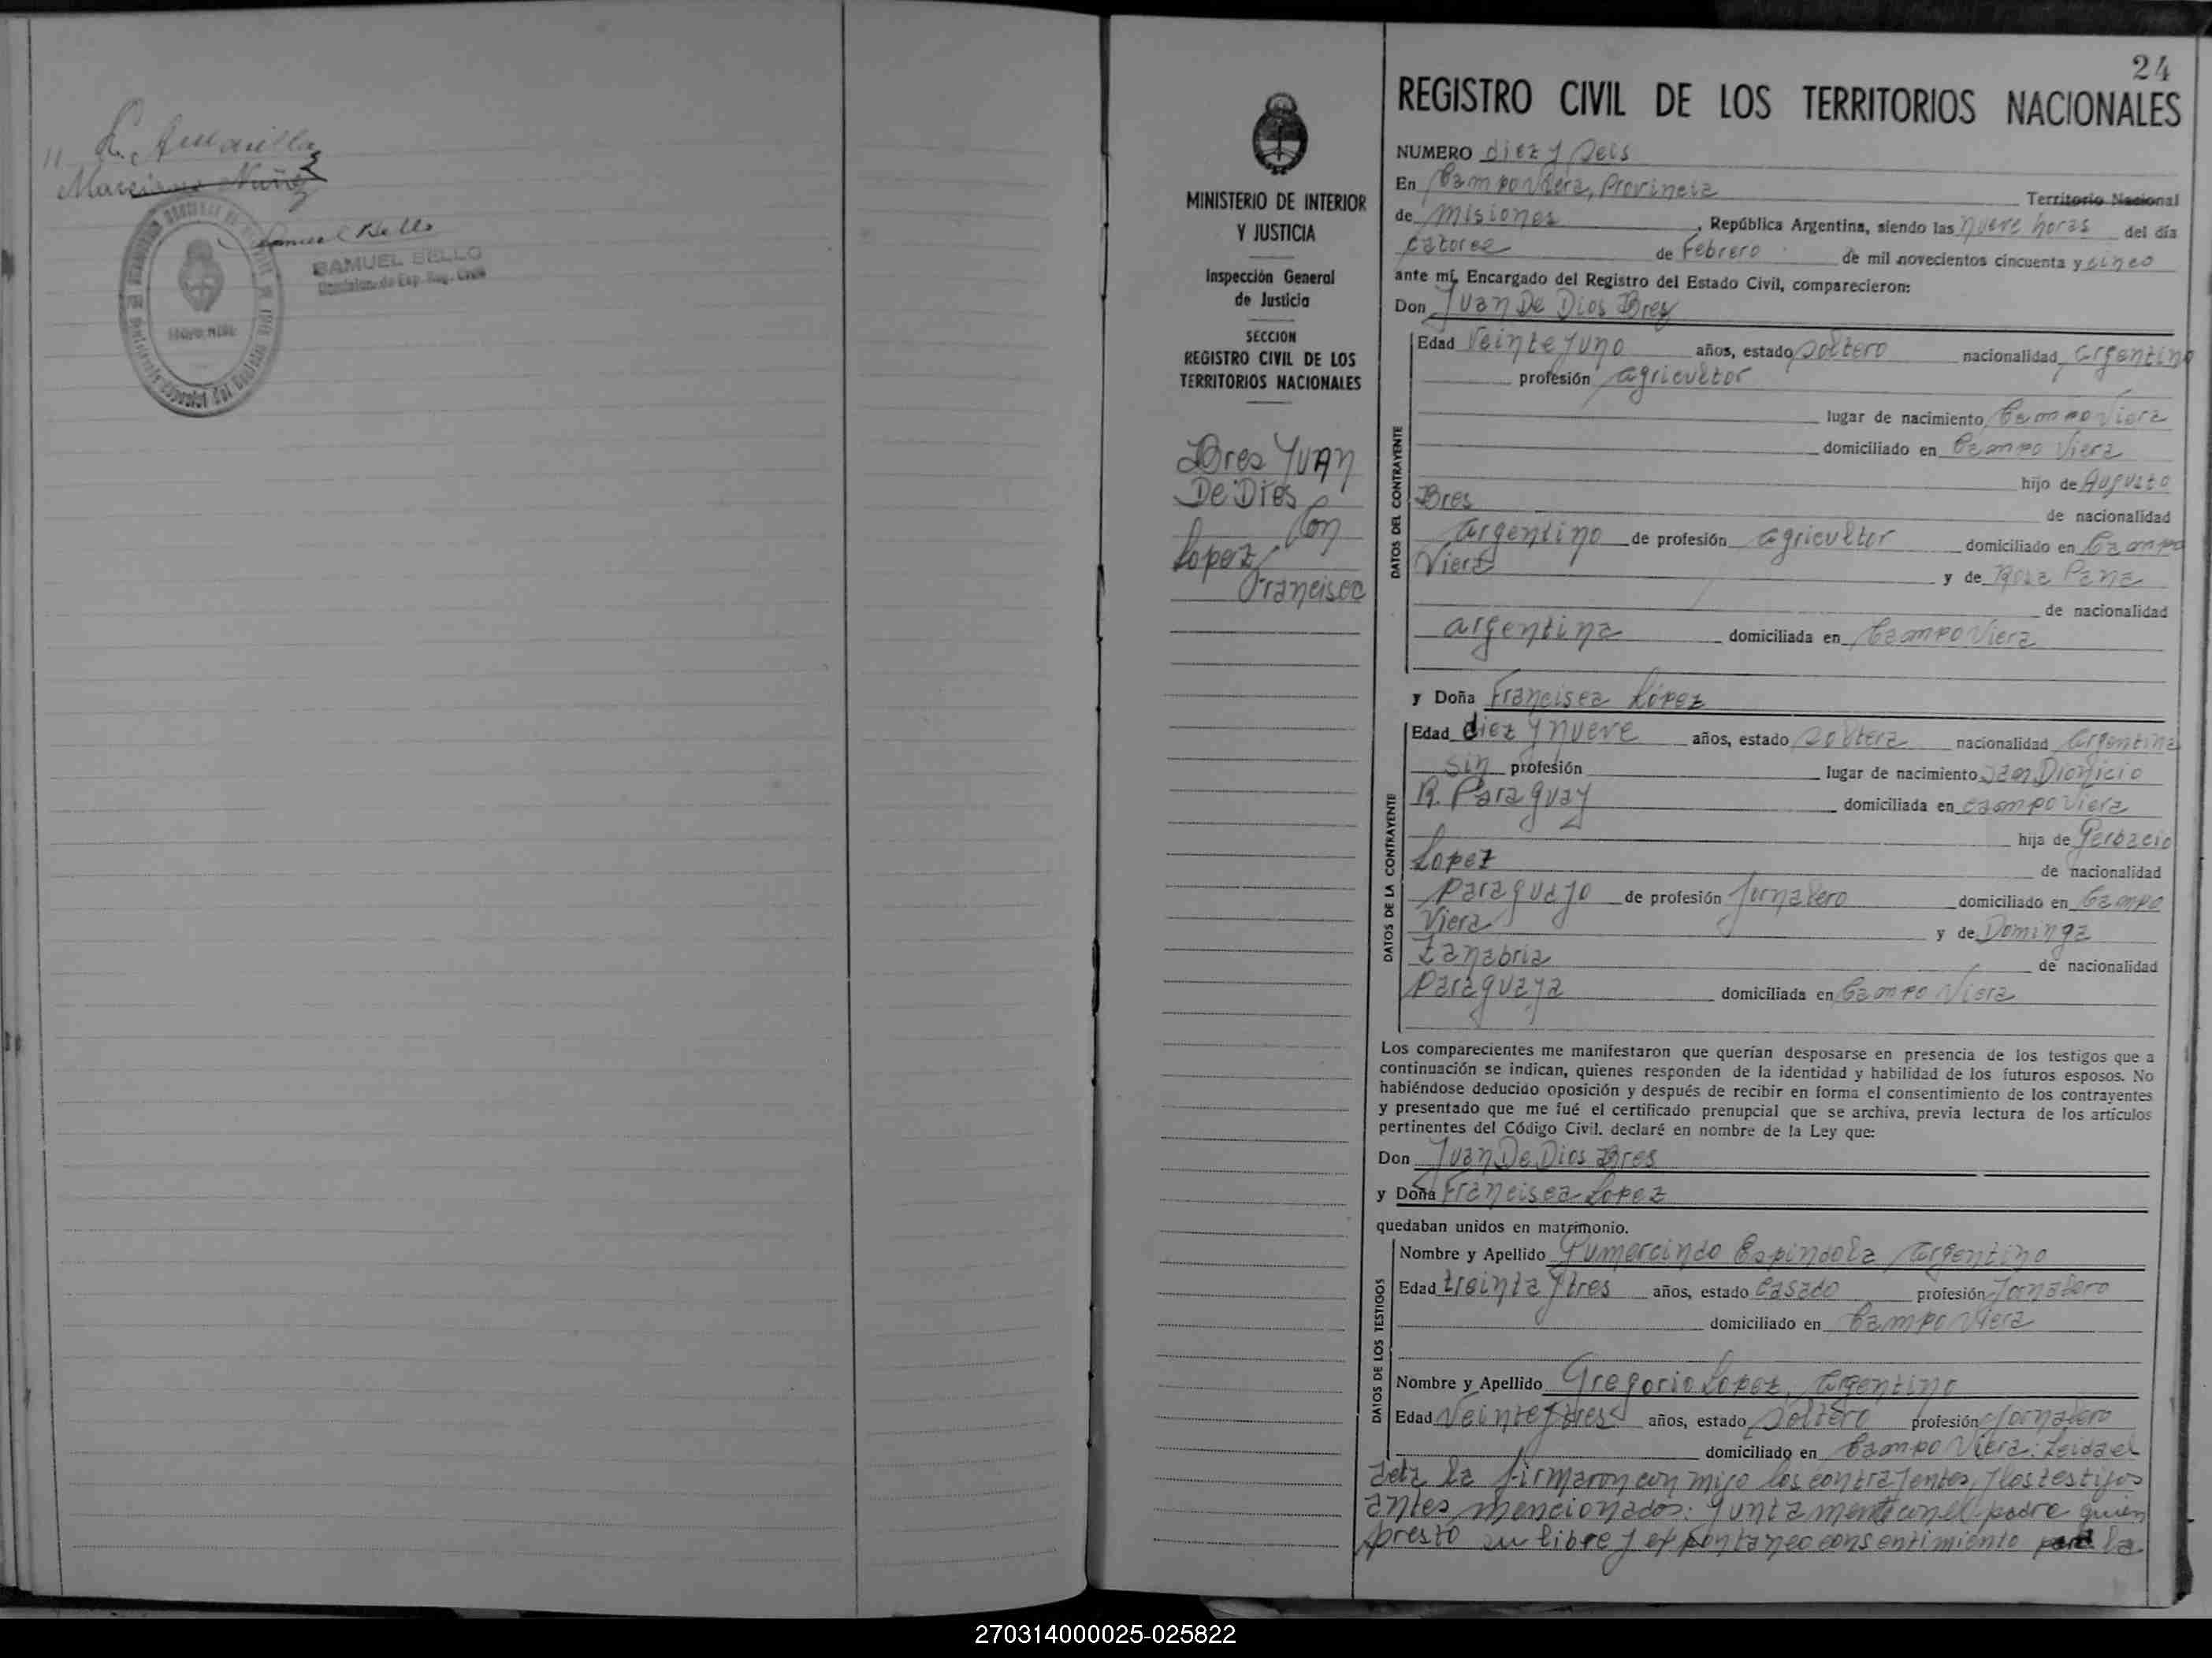 11
L. Amarilla
Marciano Nuñez
Samuel Bello
SAMUEL BELLO
24
REGISTRO CIVIL DE LOS TERRITORIOS NACIONALES
MINISTERIO DE INTERIOR
Y JUSTICIA
Inspección General
de Justicia
SECCION
REGISTRO CIVIL DE LOS
TERRITORIOS NACIONALES
Bres Juan
De Dios
Con
Lopez
Francisca
NUMERO diez y seis
En Campo Viera, Provincia Territorio Nacional
de Misiones, República Argentina, siendo las nueve horas del día
catorce de Febrero de mil novecientos cincuenta y cinco
ante mí, Encargado del Registro del Estado Civil, comparecieron:
Don Juan De Dios Bres
DATOS DEL CONTRAYENTE
Edad Veinte y uno años, estado soltero nacionalidad argentino
profesión agricultor
lugar de nacimiento Campo Viera
domiciliado en Campo Viera
hijo de Augusto
Bres
de nacionalidad
argentino de profesión agricultor domiciliado en Campo
Viera y de Rosa
de nacionalidad
argentina domiciliada en Campo Viera
y Doña Francisca López
DATOS DE LA CONTRAYENTE
Edad diez y nueve años, estado soltera nacionalidad argentina
sin profesión lugar de nacimiento San Dionicio
R. Paraguay domiciliada en Campo Viera
hija de Gerbacio
Lopez
de nacionalidad
Paraguayo de profesión Jornalero domiciliado en Campo
Viera y de Dominga
Zanabria de nacionalidad
Paraguaya domiciliada en Campo Viera
Los comparecientes me manifestaron que querían desposarse en presencia de los testigos que a
continuación se indican, quienes responden de la identidad y habilidad de los futuros esposos. No
habiéndose deducido oposición y después de recibir en forma el consentimiento de los contrayentes
y presentado que me fué el certificado prenupcial que se archiva, previa lectura de los artículos
pertinentes del Código Civil. declaré en nombre de la Ley que:
Don Juan De Dios Bres
y Doña Francisca Lopez
quedaban unidos en matrimonio.
DATOS DE LOS TESTIGOS
Nombre y Apellido Gumercindo Espindola, argentino
Edad treinta y tres años, estado Casado profesión Jornalero
domiciliado en Campo Viera
Nombre y Apellido Gregorio Lopez, argentino
Edad Veinte y tres años, estado soltero profesión Jornalero
domiciliado en Campo Viera. Leida el
acta la firmaron con migo los contrayentes, y los testigos
antes mencionados: Juntamente con el padre quien
presto su libre y expontaneo consentimiento para la
270314000025-025822